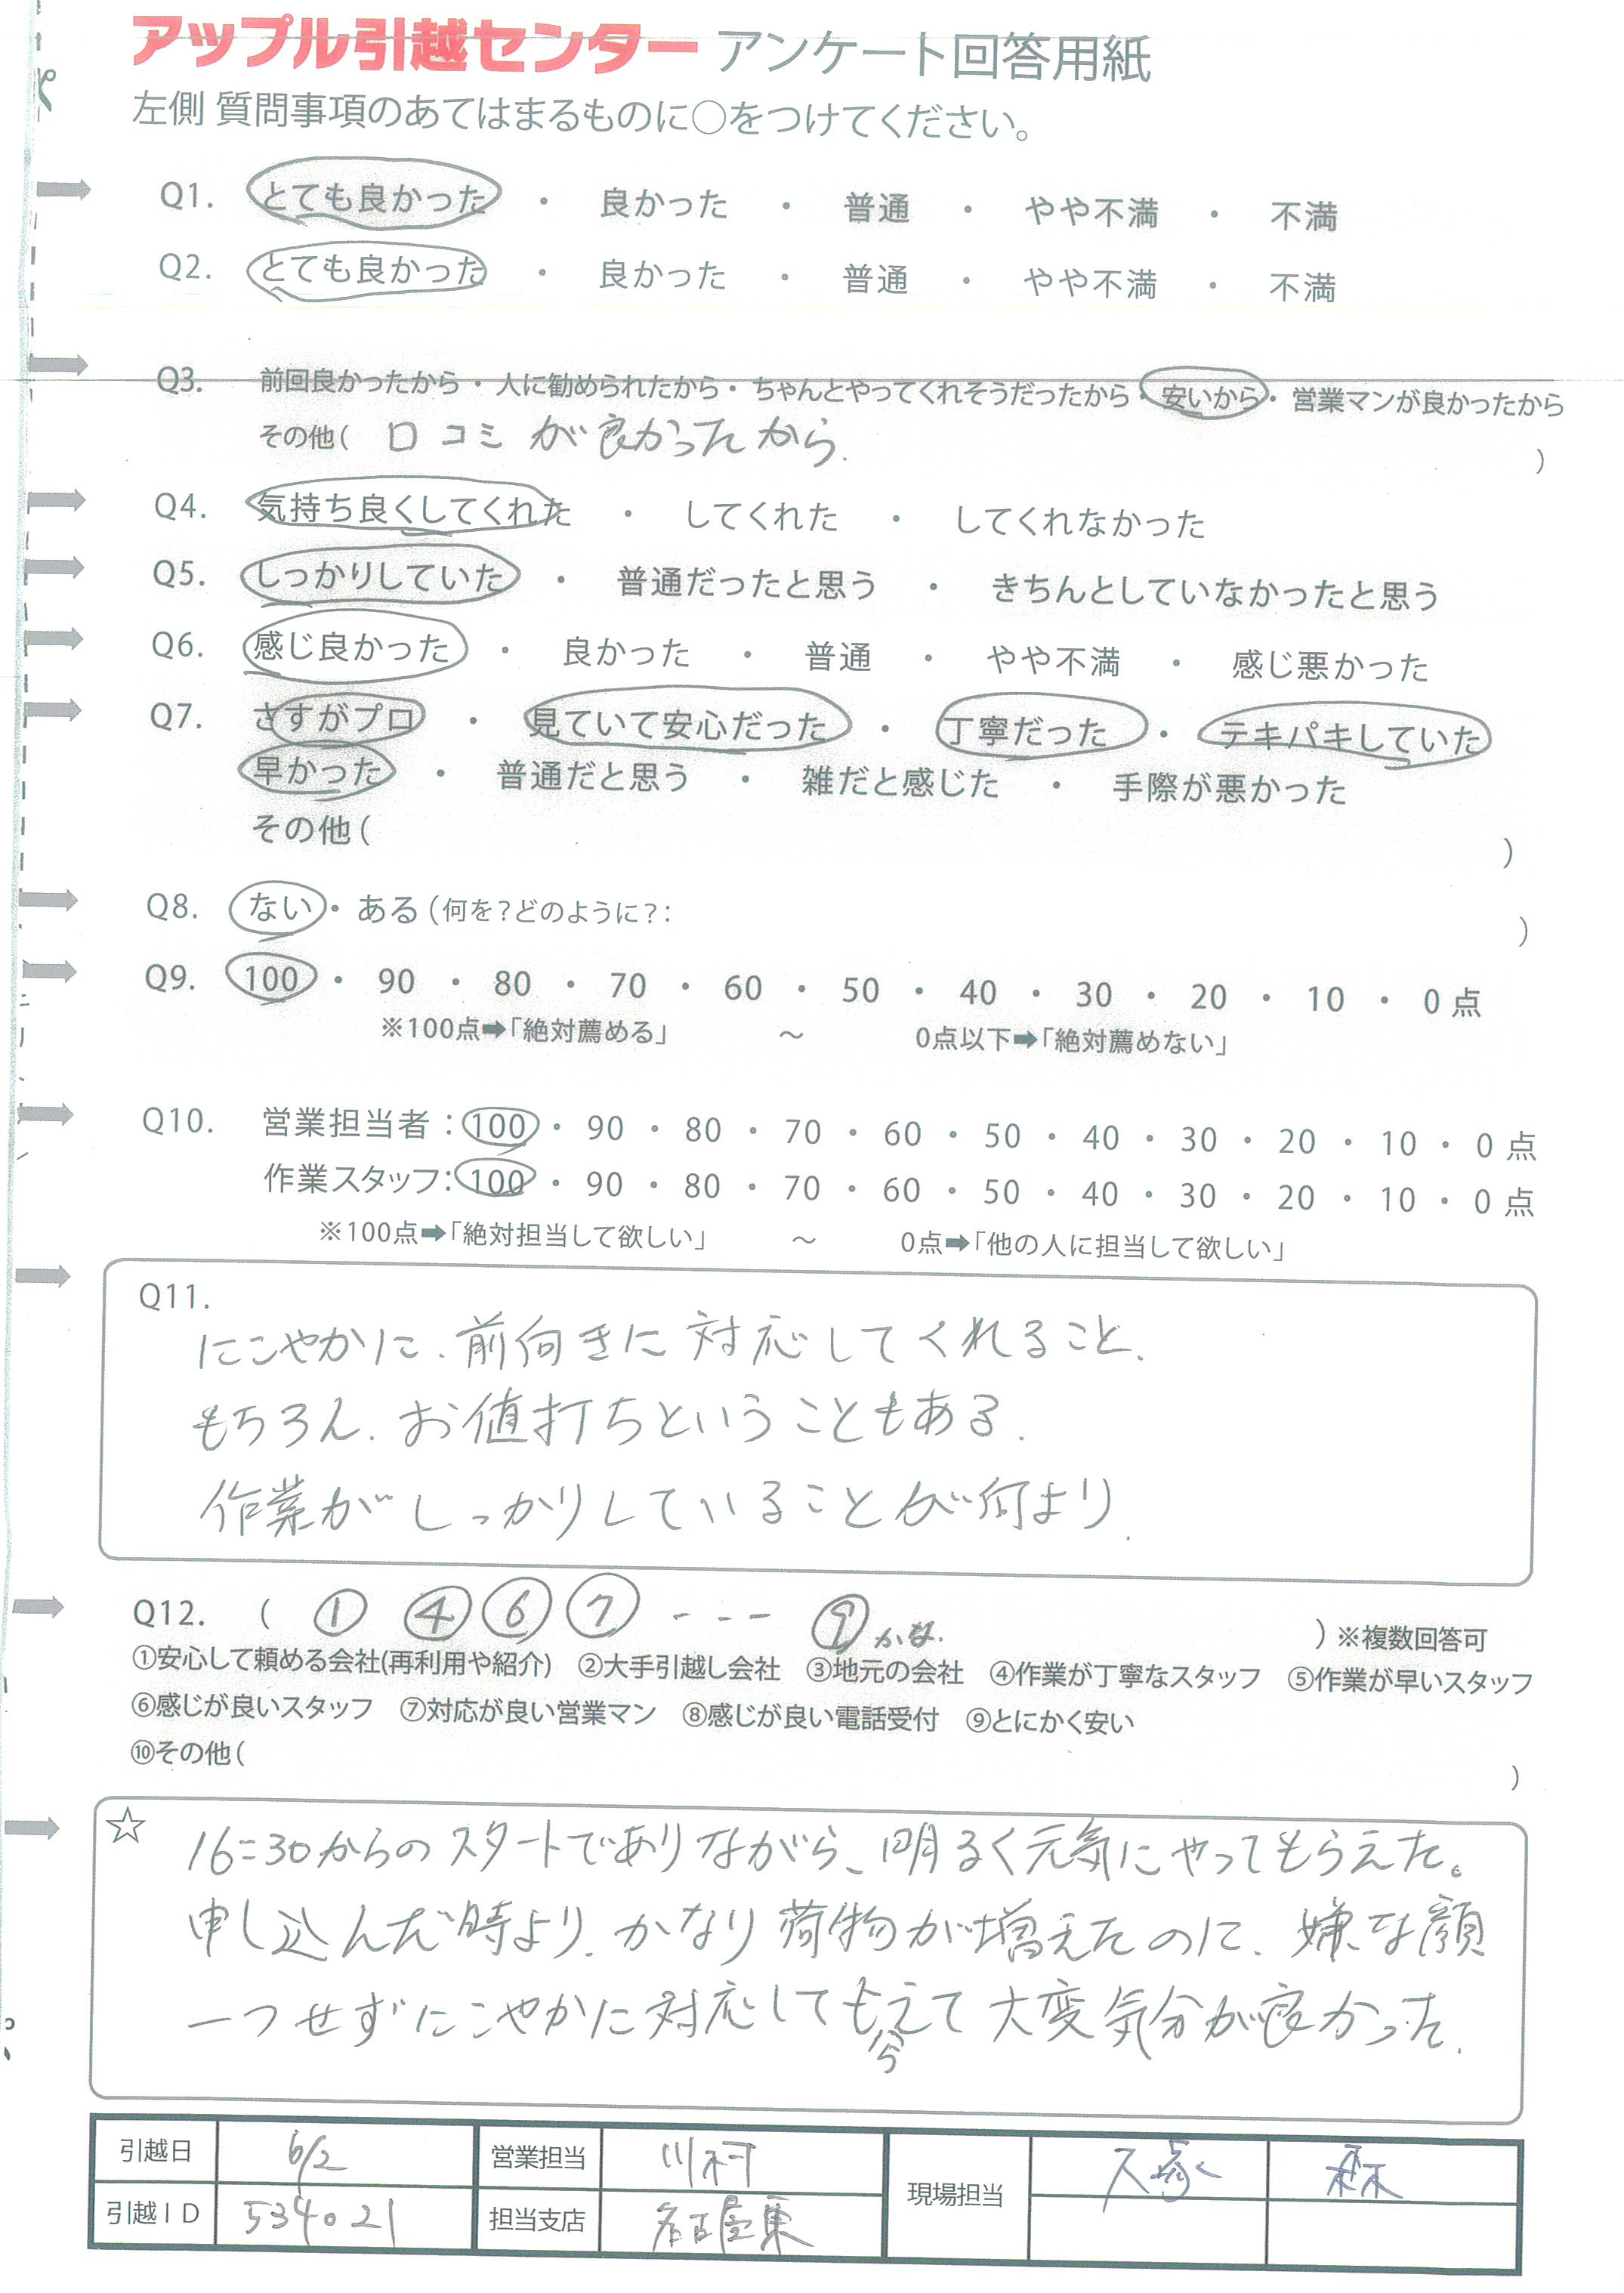 アップル引越センター アンケート回答用紙
左側 質問事項のあてはまるものに○をつけてください。
Q1. とても良かった ・ 良かった ・ 普通 ・ やや不満 ・ 不満
Q2. とても良かった ・ 良かった ・ 普通 ・ やや不満 ・ 不満
Q3. 前回良かったから・人に勧められたから・ちゃんとやってくれそうだったから・安いから・営業マンが良かったから
その他( 口コミが良かったから. )
Q4. 気持ち良くしてくれた ・ してくれた ・ してくれなかった
Q5. しっかりしていた ・ 普通だったと思う ・ きちんとしていなかったと思う
Q6. 感じ良かった ・ 良かった ・ 普通 ・ やや不満 ・ 感じ悪かった
Q7. さすがプロ ・ 見ていて安心だった ・ 丁寧だった ・ テキパキしていた
早かった ・ 普通だと思う ・ 雑だと感じた ・ 手際が悪かった
その他( )
Q8. ない ・ ある (何を?どのように?: )
Q9. 100 ・ 90 ・ 80 ・ 70 ・ 60 ・ 50 ・ 40 ・ 30 ・ 20 ・ 10 ・ 0 点
※100点➡「絶対薦める」 ～ 0点以下➡「絶対薦めない」
Q10. 営業担当者:100 ・ 90 ・ 80 ・ 70 ・ 60 ・ 50 ・ 40 ・ 30 ・ 20 ・ 10 ・ 0 点
作業スタッフ:100 ・ 90 ・ 80 ・ 70 ・ 60 ・ 50 ・ 40 ・ 30 ・ 20 ・ 10 ・ 0 点
※100点➡「絶対担当して欲しい」 ～ 0点➡「他の人に担当して欲しい」
Q11.
にこやかに、前向きに対応してくれること.
もちろん、お値打ちということもある.
作業がしっかりしていることが何より.
Q12. ( ① ④ ⑥ ⑦ - - - ⑨かな. ) ※複数回答可
①安心して頼める会社(再利用や紹介) ②大手引越し会社 ③地元の会社 ④作業が丁寧なスタッフ ⑤作業が早いスタッフ
⑥感じが良いスタッフ ⑦対応が良い営業マン ⑧感じが良い電話受付 ⑨とにかく安い
⑩その他( )
☆ 16:30からのスタートでありながら、明るく元気にやってもらえた。
申し込んだ時より、かなり荷物が増えたのに、嫌な顔
一つせずにこやかに対応してもらえて大変気分が良かった.
引越日 6/2 営業担当 川村 現場担当 森
引越ID 534021 担当支店 名古屋東